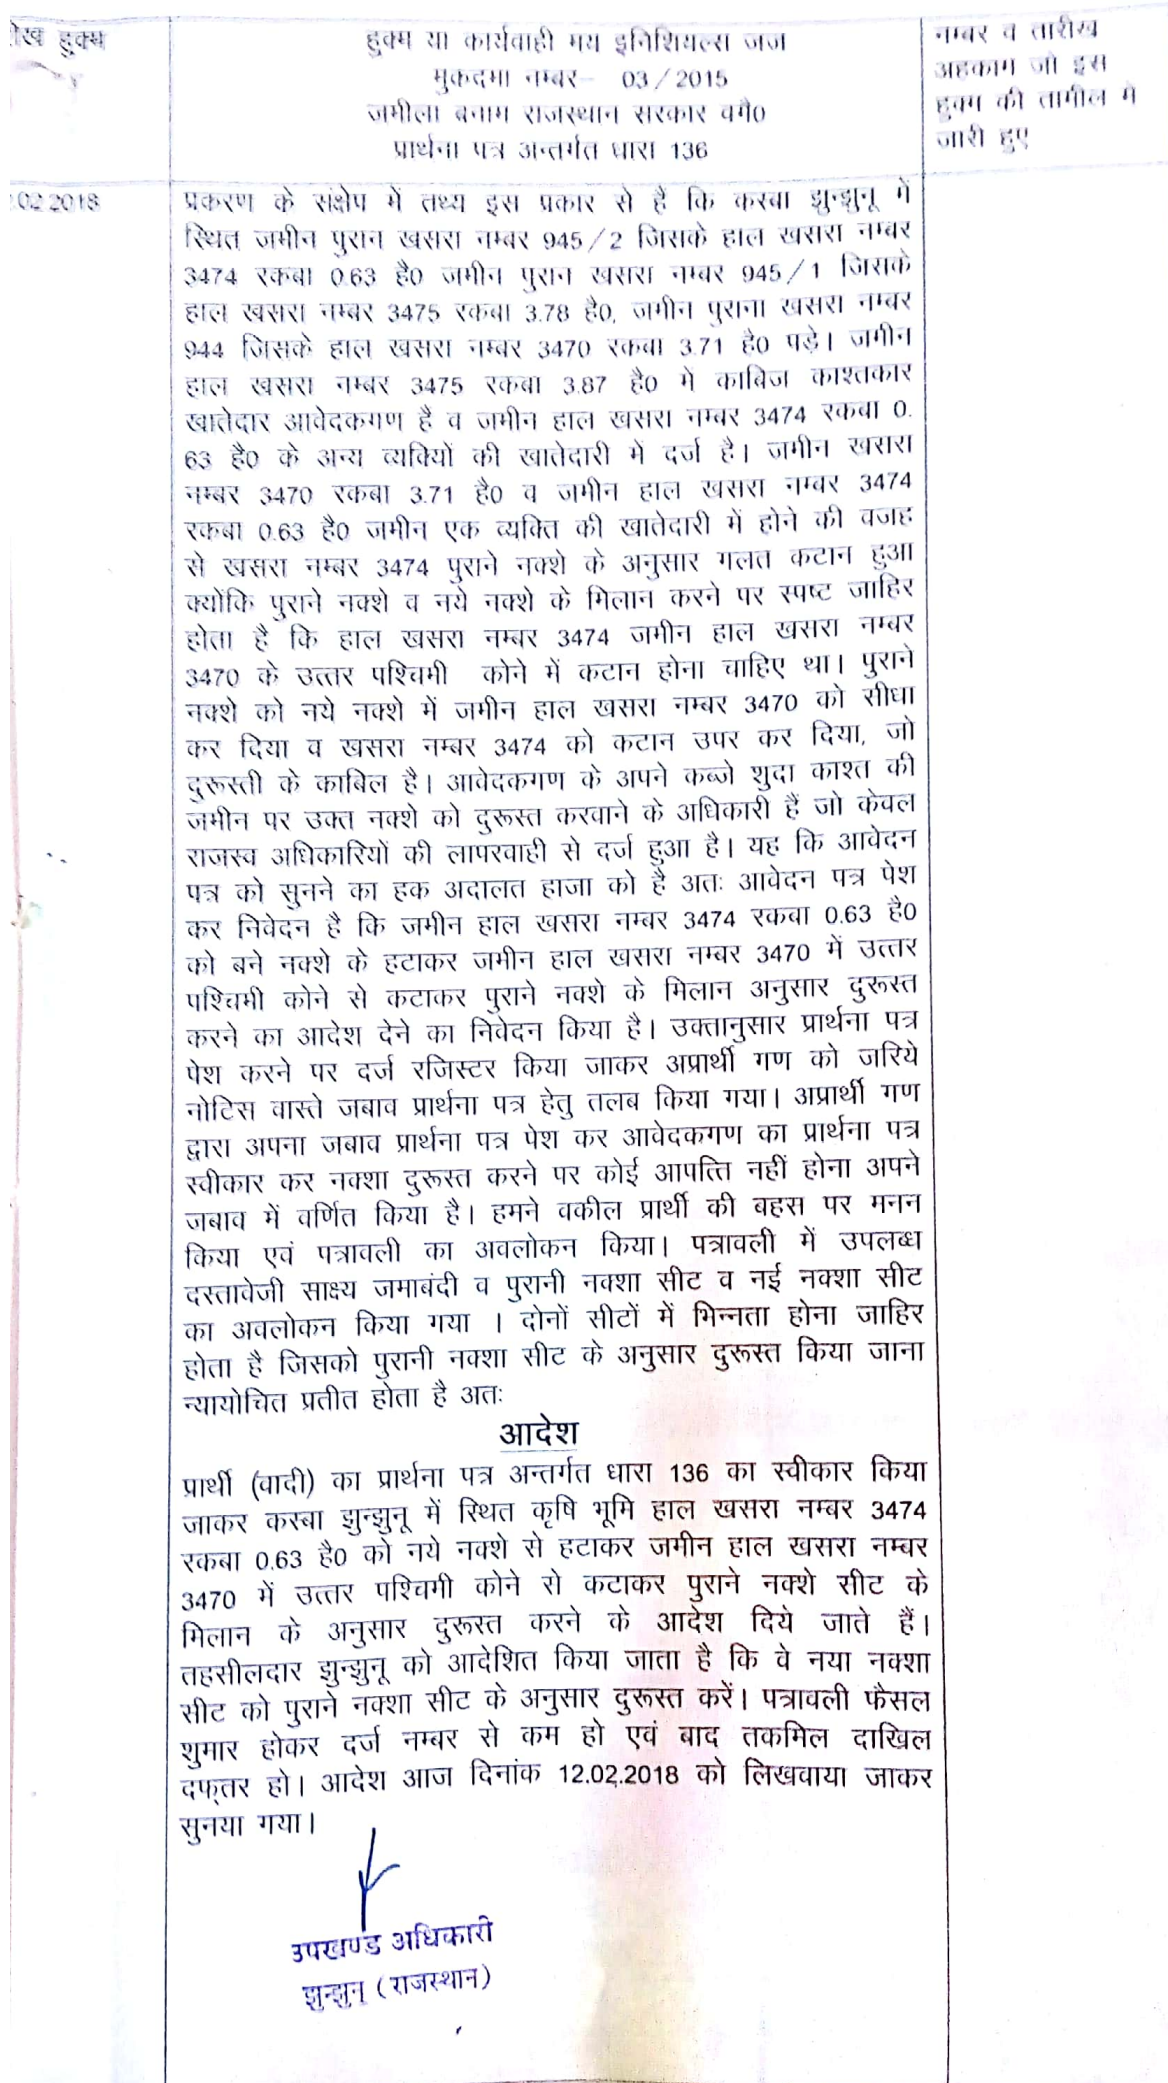 हुक्म
हुक्म या कार्यवाही मय इनिशियल्स जज
मुकदमा नम्बर- 03/2015
जमीला बनाम राजस्थान सरकार वगै0
प्रार्थना पत्र अन्तर्गत धारा 136
नम्बर व तारीख
अहकाम जो इस
हुक्म की तामील में
जारी हुए
.02.2018
प्रकरण के संक्षेप में तथ्य इस प्रकार से है कि करबा झुन्झुनू में
स्थित जमीन पुरान खसरा नम्बर 945/2 जिसके हाल खसरा नम्बर
3474 रकबा 0.63 है0 जमीन पुरान खसरा नम्बर 945/1 जिसके
हाल खसरा नम्बर 3475 रकबा 3.78 है0, जमीन पुराना खसरा नम्बर
944 जिसके हाल खसरा नम्बर 3470 रकबा 3.71 है0 पड़े। जमीन
हाल खसरा नम्बर 3475 रकबा 3.87 है0 में काबिज काश्तकार
खातेदार आवेदकगण है व जमीन हाल खसरा नम्बर 3474 रकबा 0.
63 है0 के अन्य व्यक्तियों की खातेदारी में दर्ज है। जमीन खसरा
नम्बर 3470 रकबा 3.71 है0 व जमीन हाल खसरा नम्बर 3474
रकबा 0.63 है0 जमीन एक व्यक्ति की खातेदारी में होने की वजह
से खसरा नम्बर 3474 पुराने नक्शे के अनुसार गलत कटान हुआ
क्योंकि पुराने नक्शे व नये नक्शे के मिलान करने पर स्पष्ट जाहिर
होता है कि हाल खसरा नम्बर 3474 जमीन हाल खसरा नम्बर
3470 के उत्तर पश्चिमी कोने में कटान होना चाहिए था। पुराने
नक्शे को नये नक्शे में जमीन हाल खसरा नम्बर 3470 को सीधा
कर दिया व खसरा नम्बर 3474 को कटान उपर कर दिया, जो
दुरूस्ती के काबिल है। आवेदकगण के अपने कब्जे शुदा काश्त की
जमीन पर उक्त नक्शे को दुरूस्त करवाने के अधिकारी हैं जो केवल
राजस्व अधिकारियों की लापरवाही से दर्ज हुआ है। यह कि आवेदन
पत्र को सुनने का हक अदालत हाजा को है अतः आवेदन पत्र पेश
कर निवेदन है कि जमीन हाल खसरा नम्बर 3474 रकबा 0.63 है0
को बने नक्शे के हटाकर जमीन हाल खसरा नम्बर 3470 में उत्तर
पश्चिमी कोने से कटाकर पुराने नक्शे के मिलान अनुसार दुरूस्त
करने का आदेश देने का निवेदन किया है। उक्तानुसार प्रार्थना पत्र
पेश करने पर दर्ज रजिस्टर किया जाकर अप्रार्थी गण को जरिये
नोटिस वास्ते जबाव प्रार्थना पत्र हेतु तलब किया गया। अप्रार्थी गण
द्वारा अपना जबाव प्रार्थना पत्र पेश कर आवेदकगण का प्रार्थना पत्र
स्वीकार कर नक्शा दुरूस्त करने पर कोई आपत्ति नहीं होना अपने
जबाव में वर्णित किया है। हमने वकील प्रार्थी की बहस पर मनन
किया एवं पत्रावली का अवलोकन किया। पत्रावली में उपलब्ध
दस्तावेजी साक्ष्य जमाबंदी व पुरानी नक्शा सीट व नई नक्शा सीट
का अवलोकन किया गया । दोनों सीटों में भिन्नता होना जाहिर
होता है जिसको पुरानी नक्शा सीट के अनुसार दुरूस्त किया जाना
न्यायोचित प्रतीत होता है अतः
आदेश
प्रार्थी (वादी) का प्रार्थना पत्र अन्तर्गत धारा 136 का स्वीकार किया
जाकर करबा झुन्झुनू में स्थित कृषि भूमि हाल खसरा नम्बर 3474
रकबा 0.63 है0 को नये नक्शे से हटाकर जमीन हाल खसरा नम्बर
3470 में उत्तर पश्चिमी कोने से कटाकर पुराने नक्शे सीट के
मिलान के अनुसार दुरूस्त करने के आदेश दिये जाते हैं।
तहसीलदार झुन्झुनू को आदेशित किया जाता है कि वे नया नक्शा
सीट को पुराने नक्शा सीट के अनुसार दुरूस्त करें। पत्रावली फैसल
शुमार होकर दर्ज नम्बर से कम हो एवं बाद तकमिल दाखिल
दफ्तर हो। आदेश आज दिनांक 12.02.2018 को लिखवाया जाकर
सुनया गया।
उपखण्ड अधिकारी
झुन्झुनू (राजस्थान)